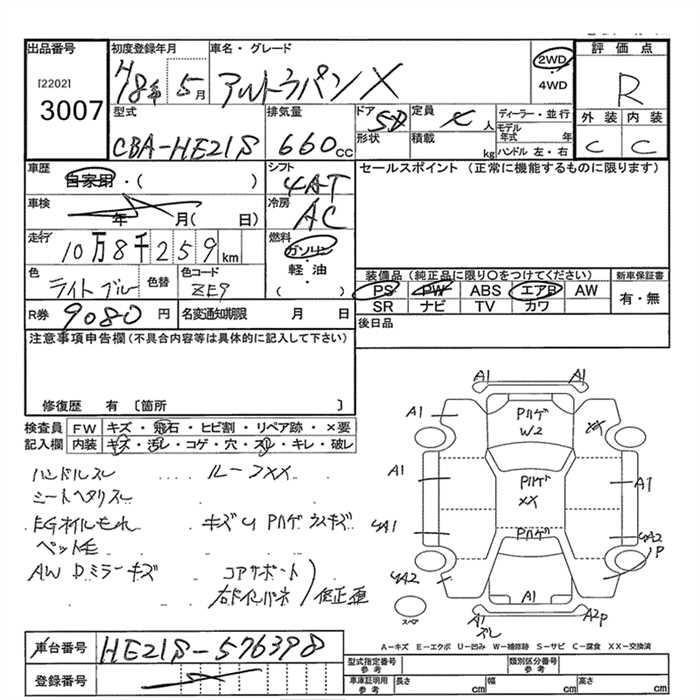 出品番号
[2202]
3007
初度登録年月
H18年 5月
車名・グレード
アルトラパン X
2WD
・
4WD
評価点
R
外装 内装
C C
型式
CBA-HE21S
排気量
660cc
ドア
5D
形状
定員
人
積載
kg
ディーラー・並行
モデル年式 年
ハンドル 左・右
車歴
自家用・( )
車検
年 月( 日)
走行
10万8千259km
シフト
4AT
冷房
AC
燃料
ガソリン
・
軽・油
( )
セールスポイント (正常に機能するものに限ります)
色
ライトブルー
色替
色コード
ZE9
装備品(純正品に限り○をつけてください)
PS PW ABS エアB AW
SR ナビ TV カワ
新車保証書
有・無
R券
9080円
名変通知期限 月 日
後日品
注意事項申告欄(不具合内容等は具体的に記入して下さい)
修復歴 有〔箇所 〕
検査員
記入欄
FW キズ・飛石・ヒビ割・リペア跡・×要
内装 キズ・汚レ・コゲ・穴・スレ・キレ・破レ
ハンドルスレ
ルーフXX
シートヘタリスレ
EGオイルもれ
キズ U Pハゲ ウスキズ
ペット毛
AW Dミラーキズ
コアサポート
修正歪
A1
A1
A1
Pハゲ
W2
XX
A1
Pハゲ
XX
A1
4A1
Pハゲ
4A2
P
4A2
A1
A1
スレ
A2P
スペア
A-キズ E-エクボ U-凹み W-補修跡 S-サビ C-腐食 XX-交換済
車台番号
HE21S-576398
登録番号
型式指定番号
参考
類別区分番号
参考
車庫証明用
参考
長さ cm
幅 cm
高さ cm